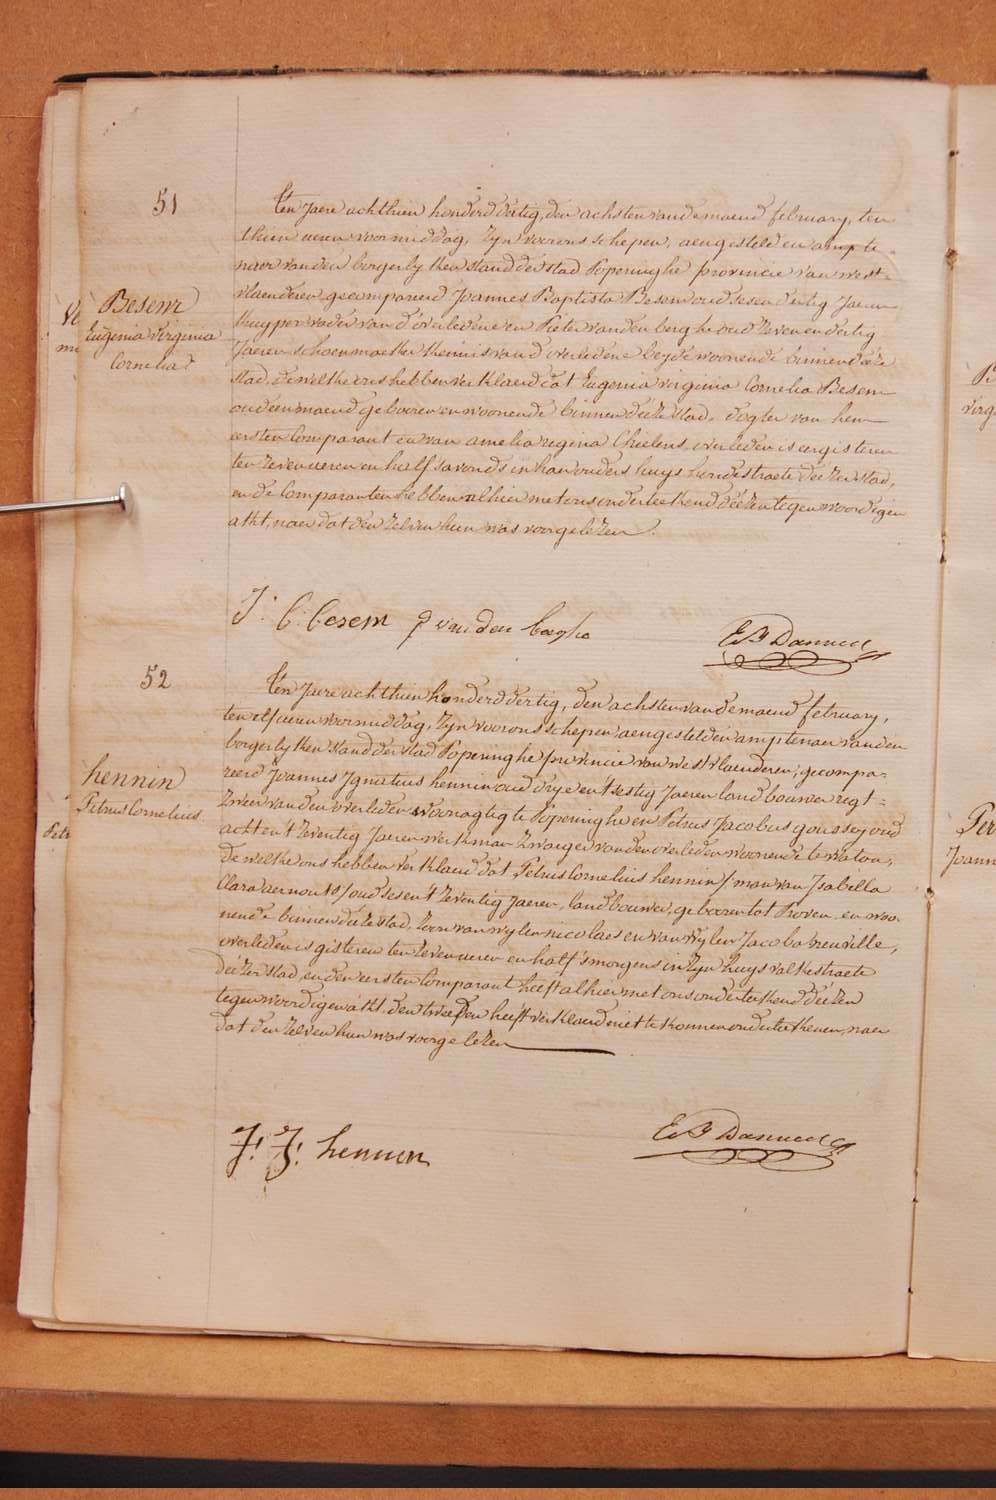 51
Besem
Eugenia Virginia
Cornelia
Ten Jaere achthien honderd dertig, den achsten van de maend february, ten
thien ueren voormiddag, Zyn voor ons schepen, aengestelden ampte
naer van den borgerlyken stand der stad Poperinghe provincie van west-
vlaenderen, gecompareerd Joannes Baptista Besem oud sesendertig Jaeren
kuyper vader van d'overledene en Pieter vanden berghe oud Zevenendertig
Jaeren schoenmaeker kennis van d'overledene beyde woonende binnen deeze
stad, dewelke ons hebben verklaerd dat Eugenia virginia Cornelia Besem
oud een maend geboren en woonende binnen deeze stad, dogter van hem
eersten Comparant en van amelia regina Chielens, overleden is eergisteren
ten zeven ueren en half s'avonds in haer ouders huys hondestraete deezer stad,
en de Comparanten hebben alhier met ons onderteekend deezen tegenwoordigen
akt, naer dat den zelven hun was voorgelezen.
J: B: besem p vanden berghe
52
hennin
Petrus Cornelius
Ten Jaere achthien honderd dertig, den achsten van de maend february,
ten elf ueren voormiddag, Zyn voor ons schepen aengestelden amptenaer van den
borgerlyken stand der stad Poperinghe provincie van westvlaenderen, gecompa-
reerd Joannes Ignatius hennin oud drye en t'sestig Jaeren landbouwer regt-
Zweer van den overleden woonagtig te Poperinghe en Petrus Jacobus goussey oud
acht en t'zeventig Jaeren werkman Zwaeger van den overleden woonende te watou,
dewelke ons hebben verklaerd dat Petrus Cornelius hennin /man van Isabella
Clara aernouts/ oud ses en t'zeventig Jaeren, landbouwer, geboren tot Proven en woo-
nende binnen deeze stad, Zoon van wylen nicolaes en van wylen Jacoba neuville,
overleden is gisteren ten zeven ueren en half s'morgens in Zyn huys valkestraete
deezer stad, en den eersten Comparant heeft alhier met ons onderteekend deezen
tegenwoordigen akt, den tweeden heeft verklaerd niet te konnen onderteekenen, naer
dat den zelven hun was voorgelezen
J: J: hennen